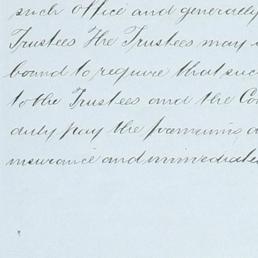 such office and generally
Trustees The Trustees may
bound to require that suc
to the Trustees and the Co
duly pay the premiums a
insurance and immediate